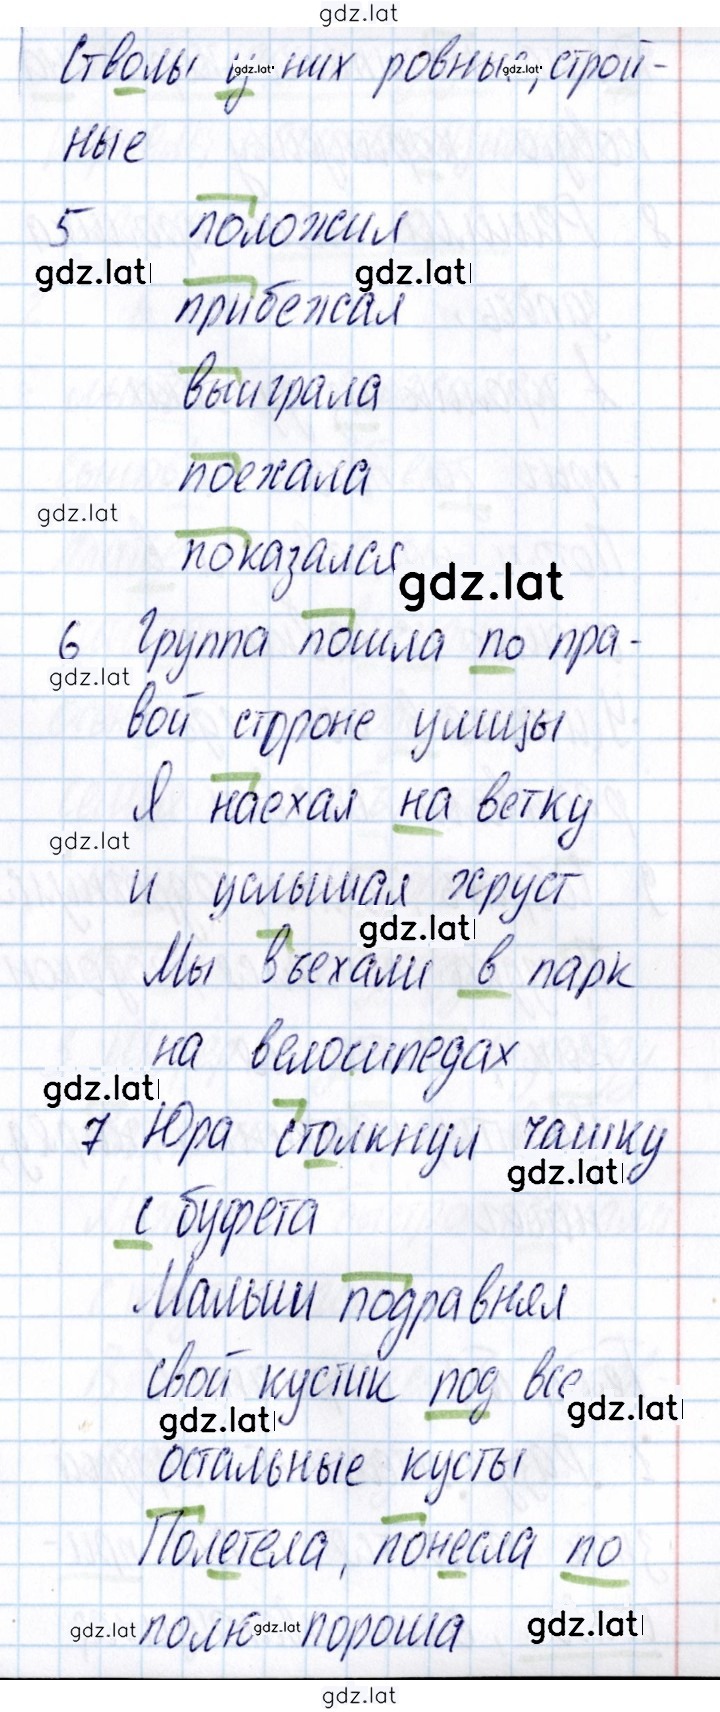 gdz.lat
Стволы у gdz.lat них ровные, gdz.lat строй-
ные
5 положил
gdz.lat gdz.lat
прибежал
выиграла
поехала
gdz.lat
показался
gdz.lat
6 Группа пошла по пра-
gdz.lat
вой стороне улицы
Я наехал на ветку
gdz.lat
и услышал хруст
gdz.lat
Мы въехали в парк
на велосипедах
gdz.lat
7 Юра столкнул чашку
gdz.lat
с буфета
Малыш подравнял
свой кустик под все
gdz.lat gdz.lat
остальные кусты
Полетела, понесла по
gdz.lat полю gdz.lat пороша gdz.lat
gdz.lat